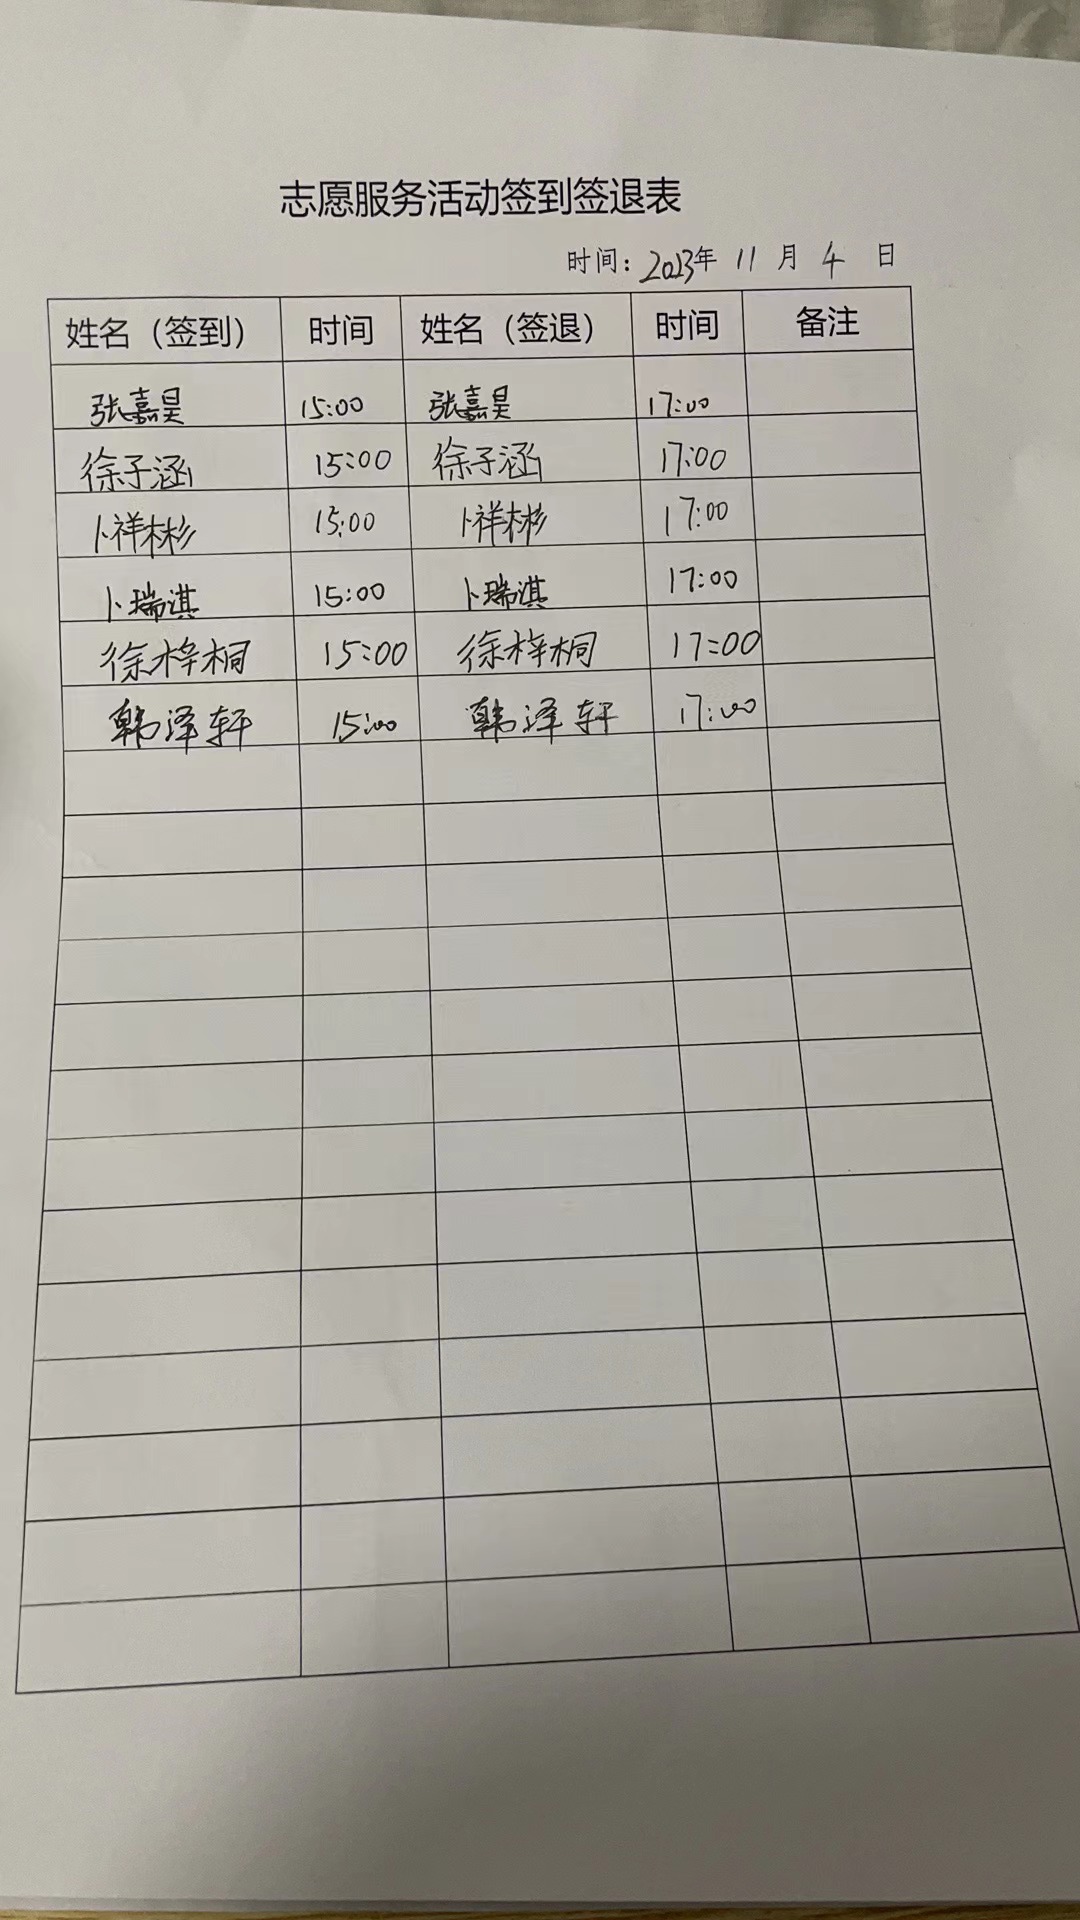 志愿服务活动签到签退表
时间：2023年 11 月 4 日
姓名（签到） 时间 姓名（签退） 时间 备注
张嘉昊 15:00 张嘉昊 17:00
徐子涵 15:00 徐子涵 17:00
卜祥彬 15:00 卜祥彬 17:00
卜瑞淇 15:00 卜瑞淇 17:00
徐梓桐 15:00 徐梓桐 17:00
韩泽轩 15:00 韩泽轩 17:00